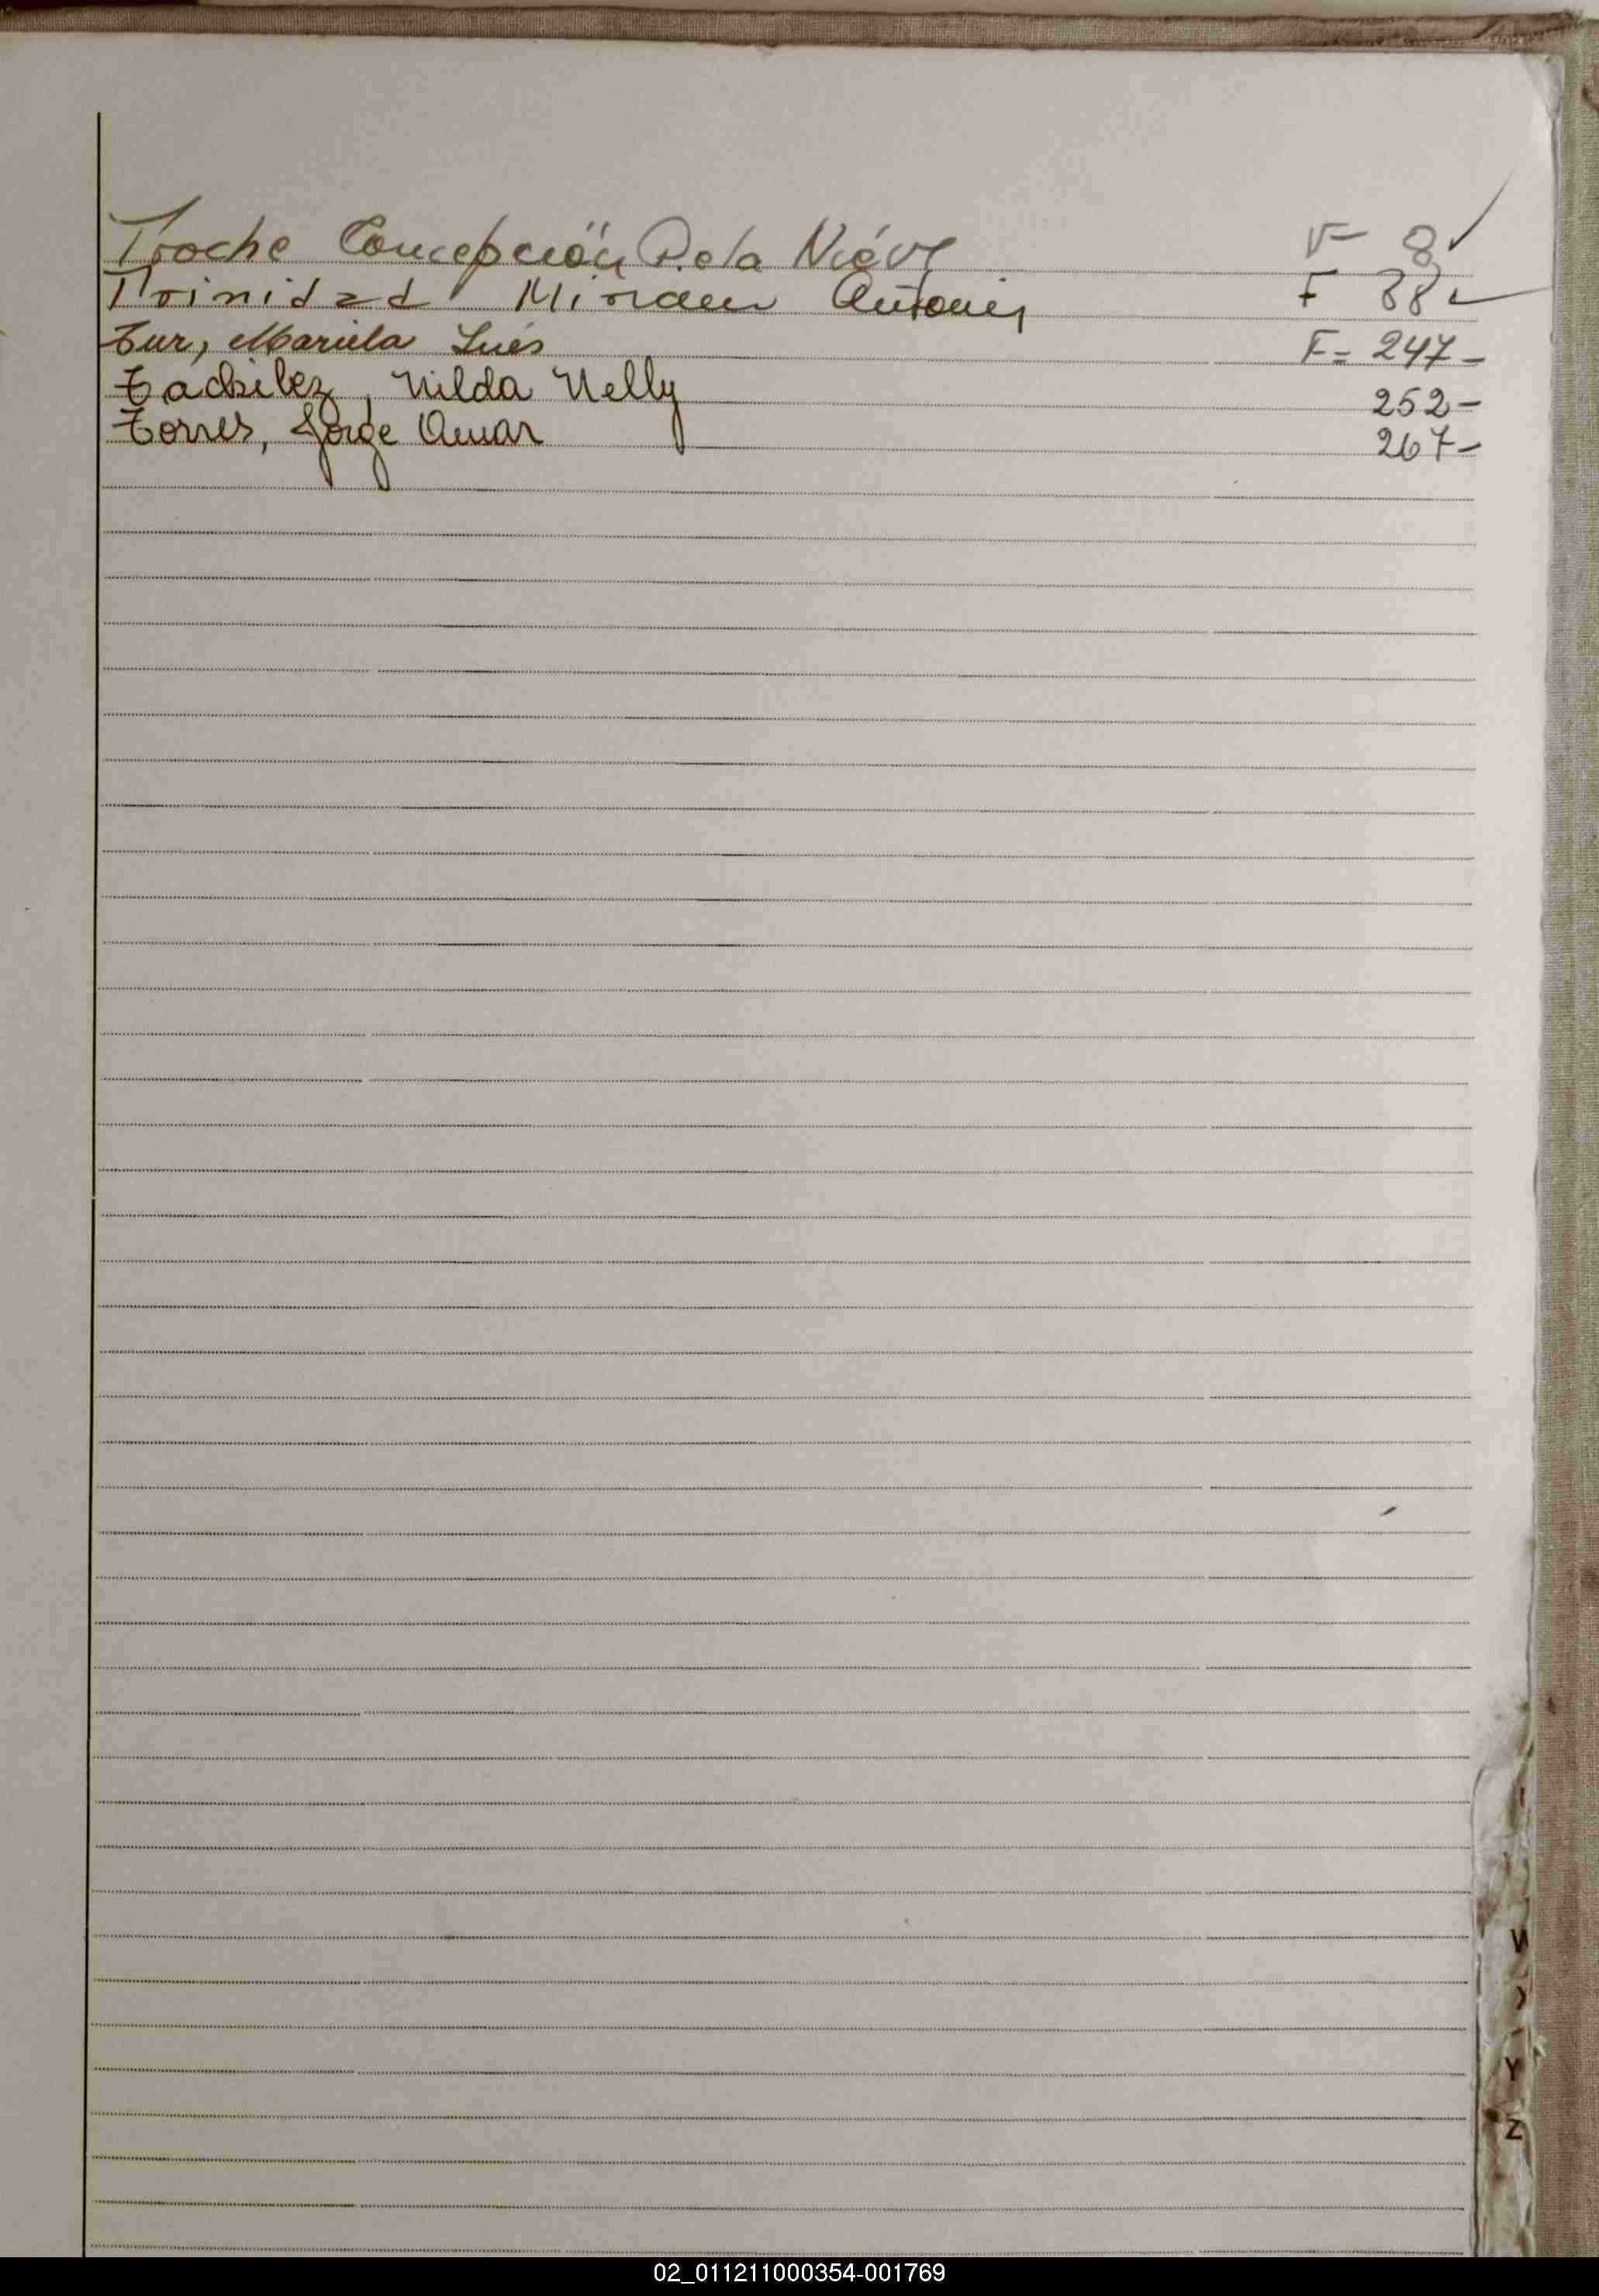 Troche Concepción P. de la Nieve F 8
Trinidad Miriam Antonia F 88
Tur, Mariela Inés F = 247 -
Tachilez, Nilda Nelly 252 -
Torres, Jorge Omar 267 -
W
Y
Z
02_011211000354-001769